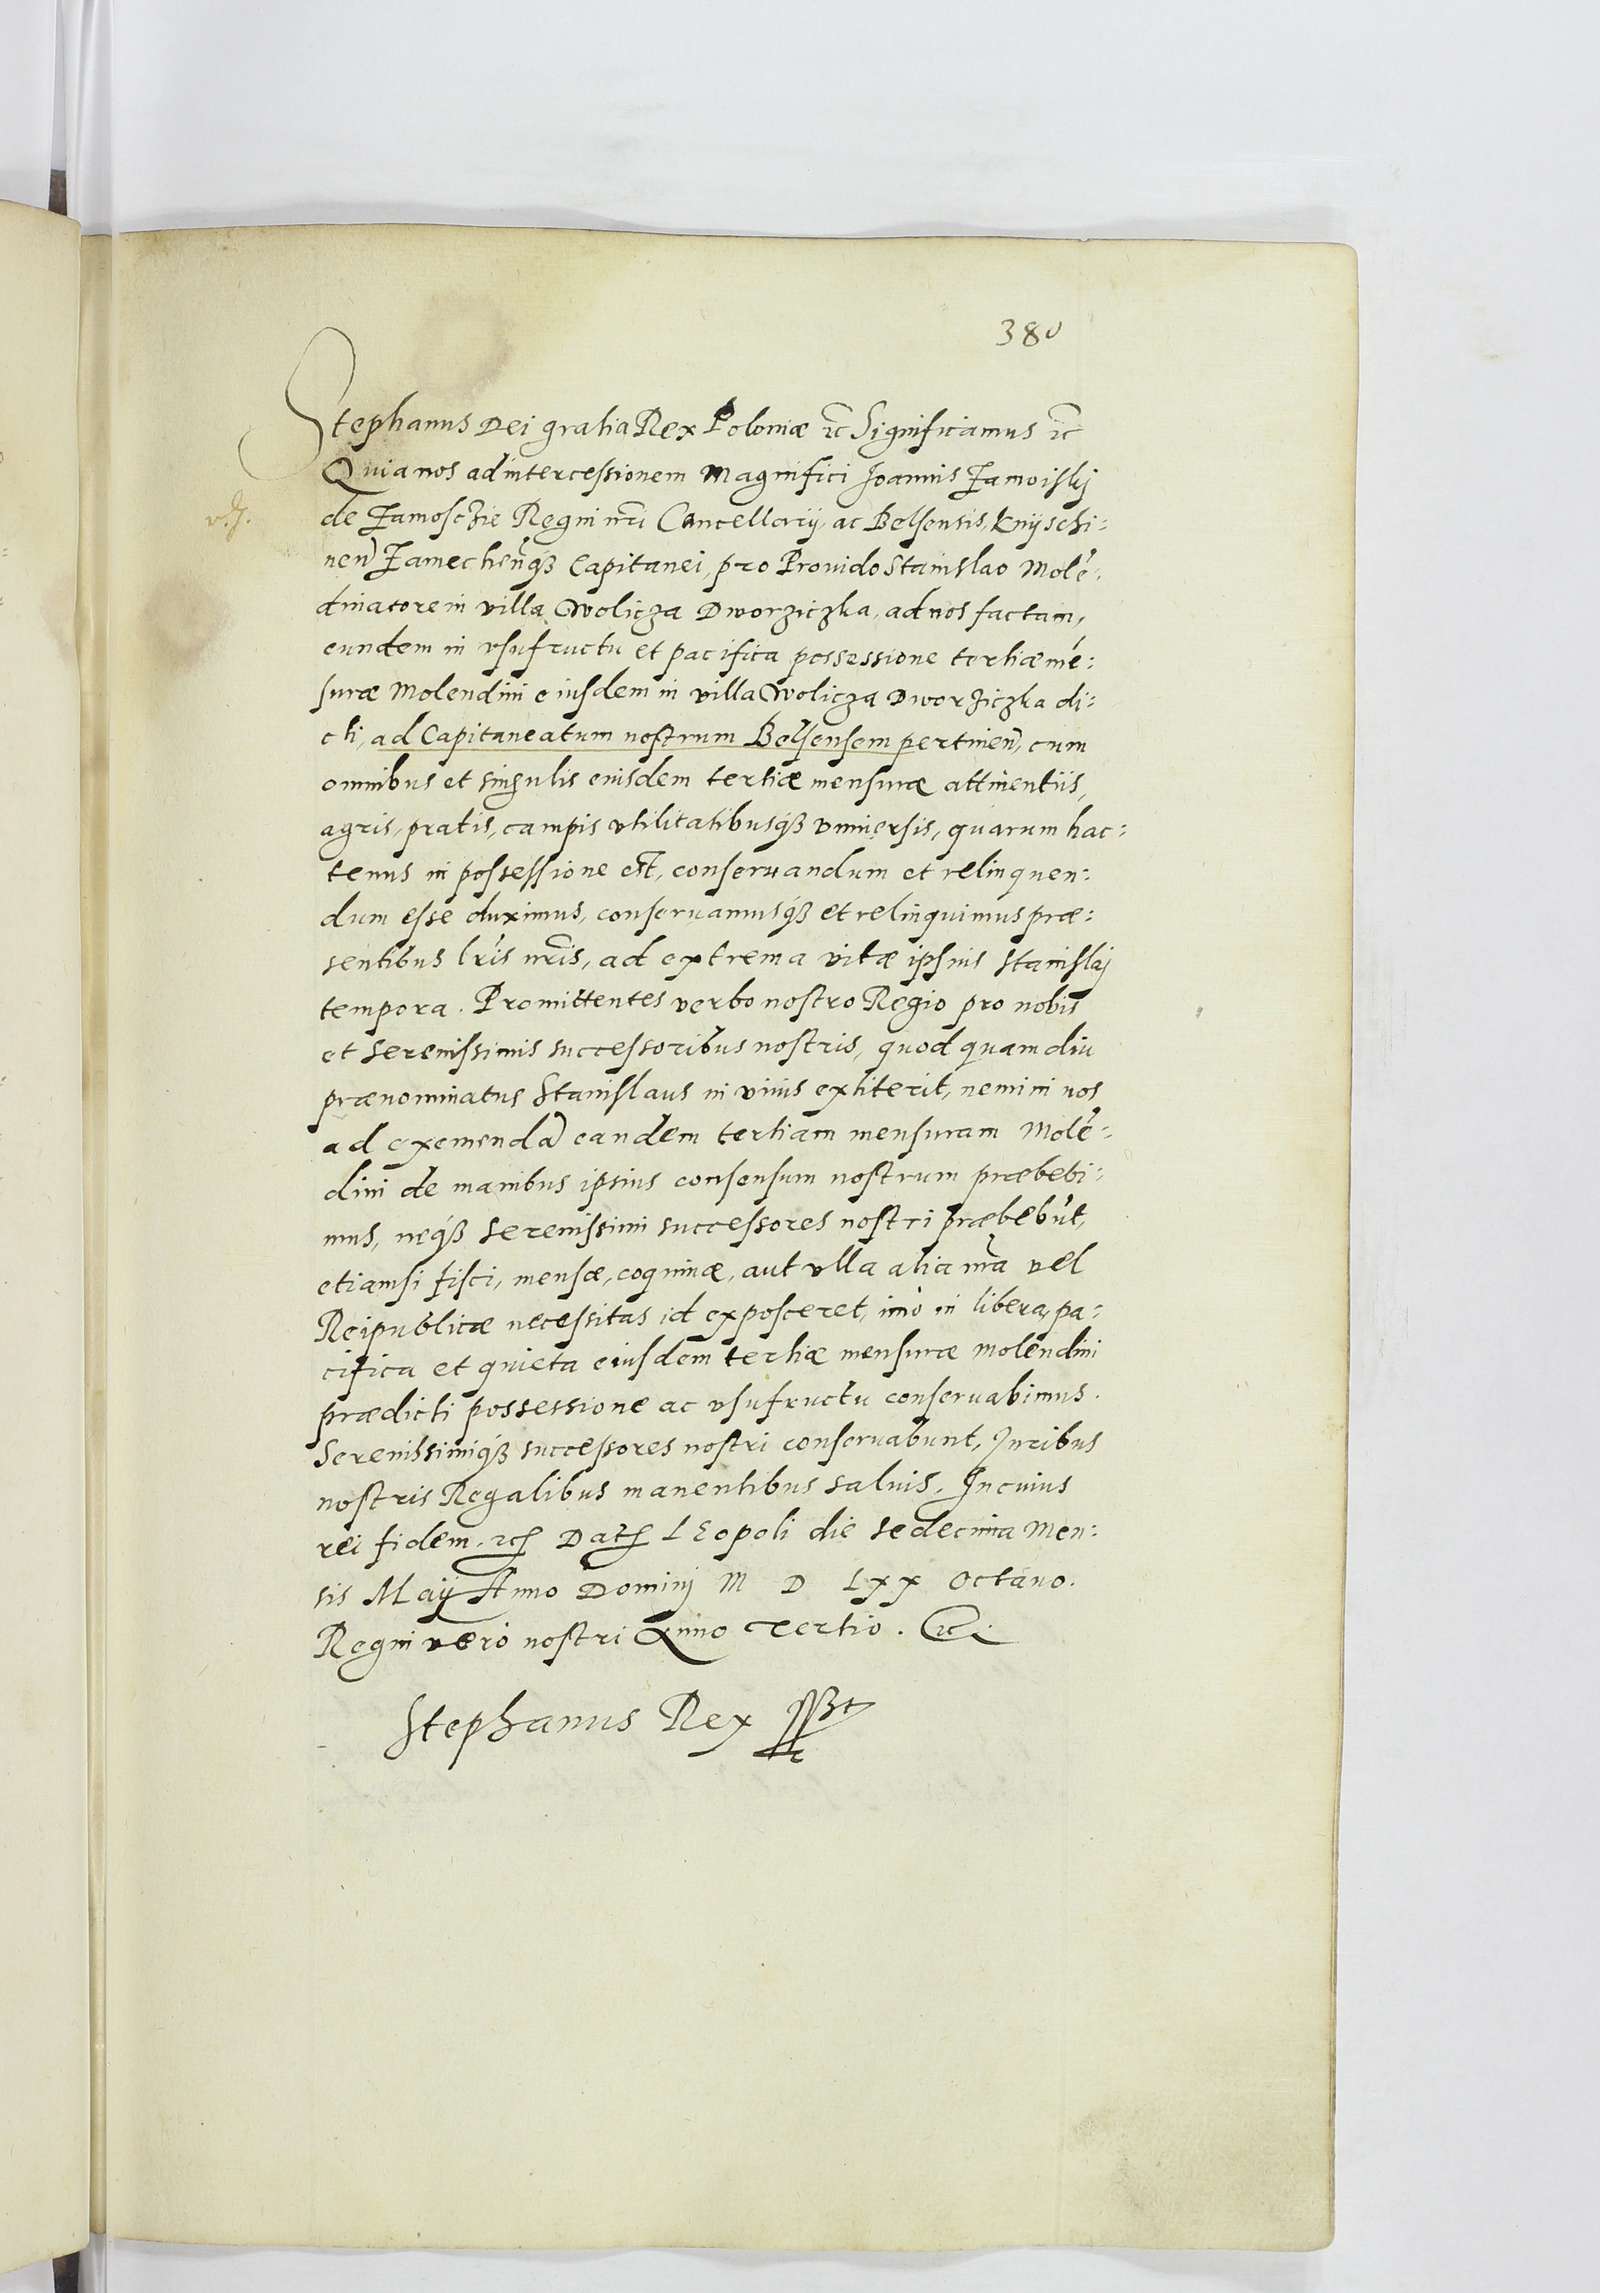 380
Stephanus Dei gratia Rex Poloniæ ꝛc Significamus ꝛc
Quia nos ad intercessionem Magnifici Joannis Zamoiskij
de Zamoschie Regni nrĩ Cancellarij, ac Belsensis, Knijschi:
neñ Zamecheñq́ꝫ Capitanei, pro Prouido Stanislao Molẽ:
dinatore in villa Wolicza Dworziczka, ad nos factam,
eundem in vsufructu et pacifica possessione tertiæ mẽ:
suræ Molendini eiusdem in villa Wolicza Dworziczka di:
cti, ad Capitaneatum nostrum Belsensem pertineñ, cum
omnibus et singulis eiusdem tertiæ mensuræ attinentiis,
agris, pratis, campis vtilitatibusq́ꝫ vniuersis, quarum hac:
tenus in possessione est, conseruandum et relinquen:
dum esse duximus, conseruamusq́ꝫ et relinquimus præ:
sentibus lrĩs nrĩs, ad extrema vitæ ipsius Stanislaj
tempora. Promittentes verbo nostro Regio pro nobis
et Serenissimis successoribus nostris, quod quamdiu
prænominatus Stanislaus in viuis extiterit, nemini nos
ad exemendã eandem tertiam mensuram Molẽ:
dini de manibus ipsius consensum nostrum præbebi:
mus, neq́ꝫ Serenissimi successores nostri præbebũt,
etiamsi fisci, mensæ, coquinæ, aut vlla alia nrã vel
Reipublicæ necessitas id exposceret, imò in libera, pa:
cifica et quieta eiusdem tertiæ mensuræ molendini
prædicti possessione ac vsufructu conseruabimus.
Serenissimiq́ꝫ successores nostri conseruabunt, Juribus
nostris Regalibus manentibus saluis. In cuius
rei fidem. ꝛc Dat LEopoli die sedecima Men:
sis Maij Anno Dominj M D LXX Octauo.
Regni verò nostri Anno Tertio. ꝛc.
Stephanus Rex sst